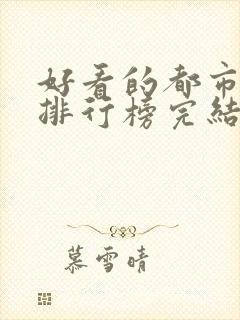 好看的都市
排行榜完结
慕雪晴